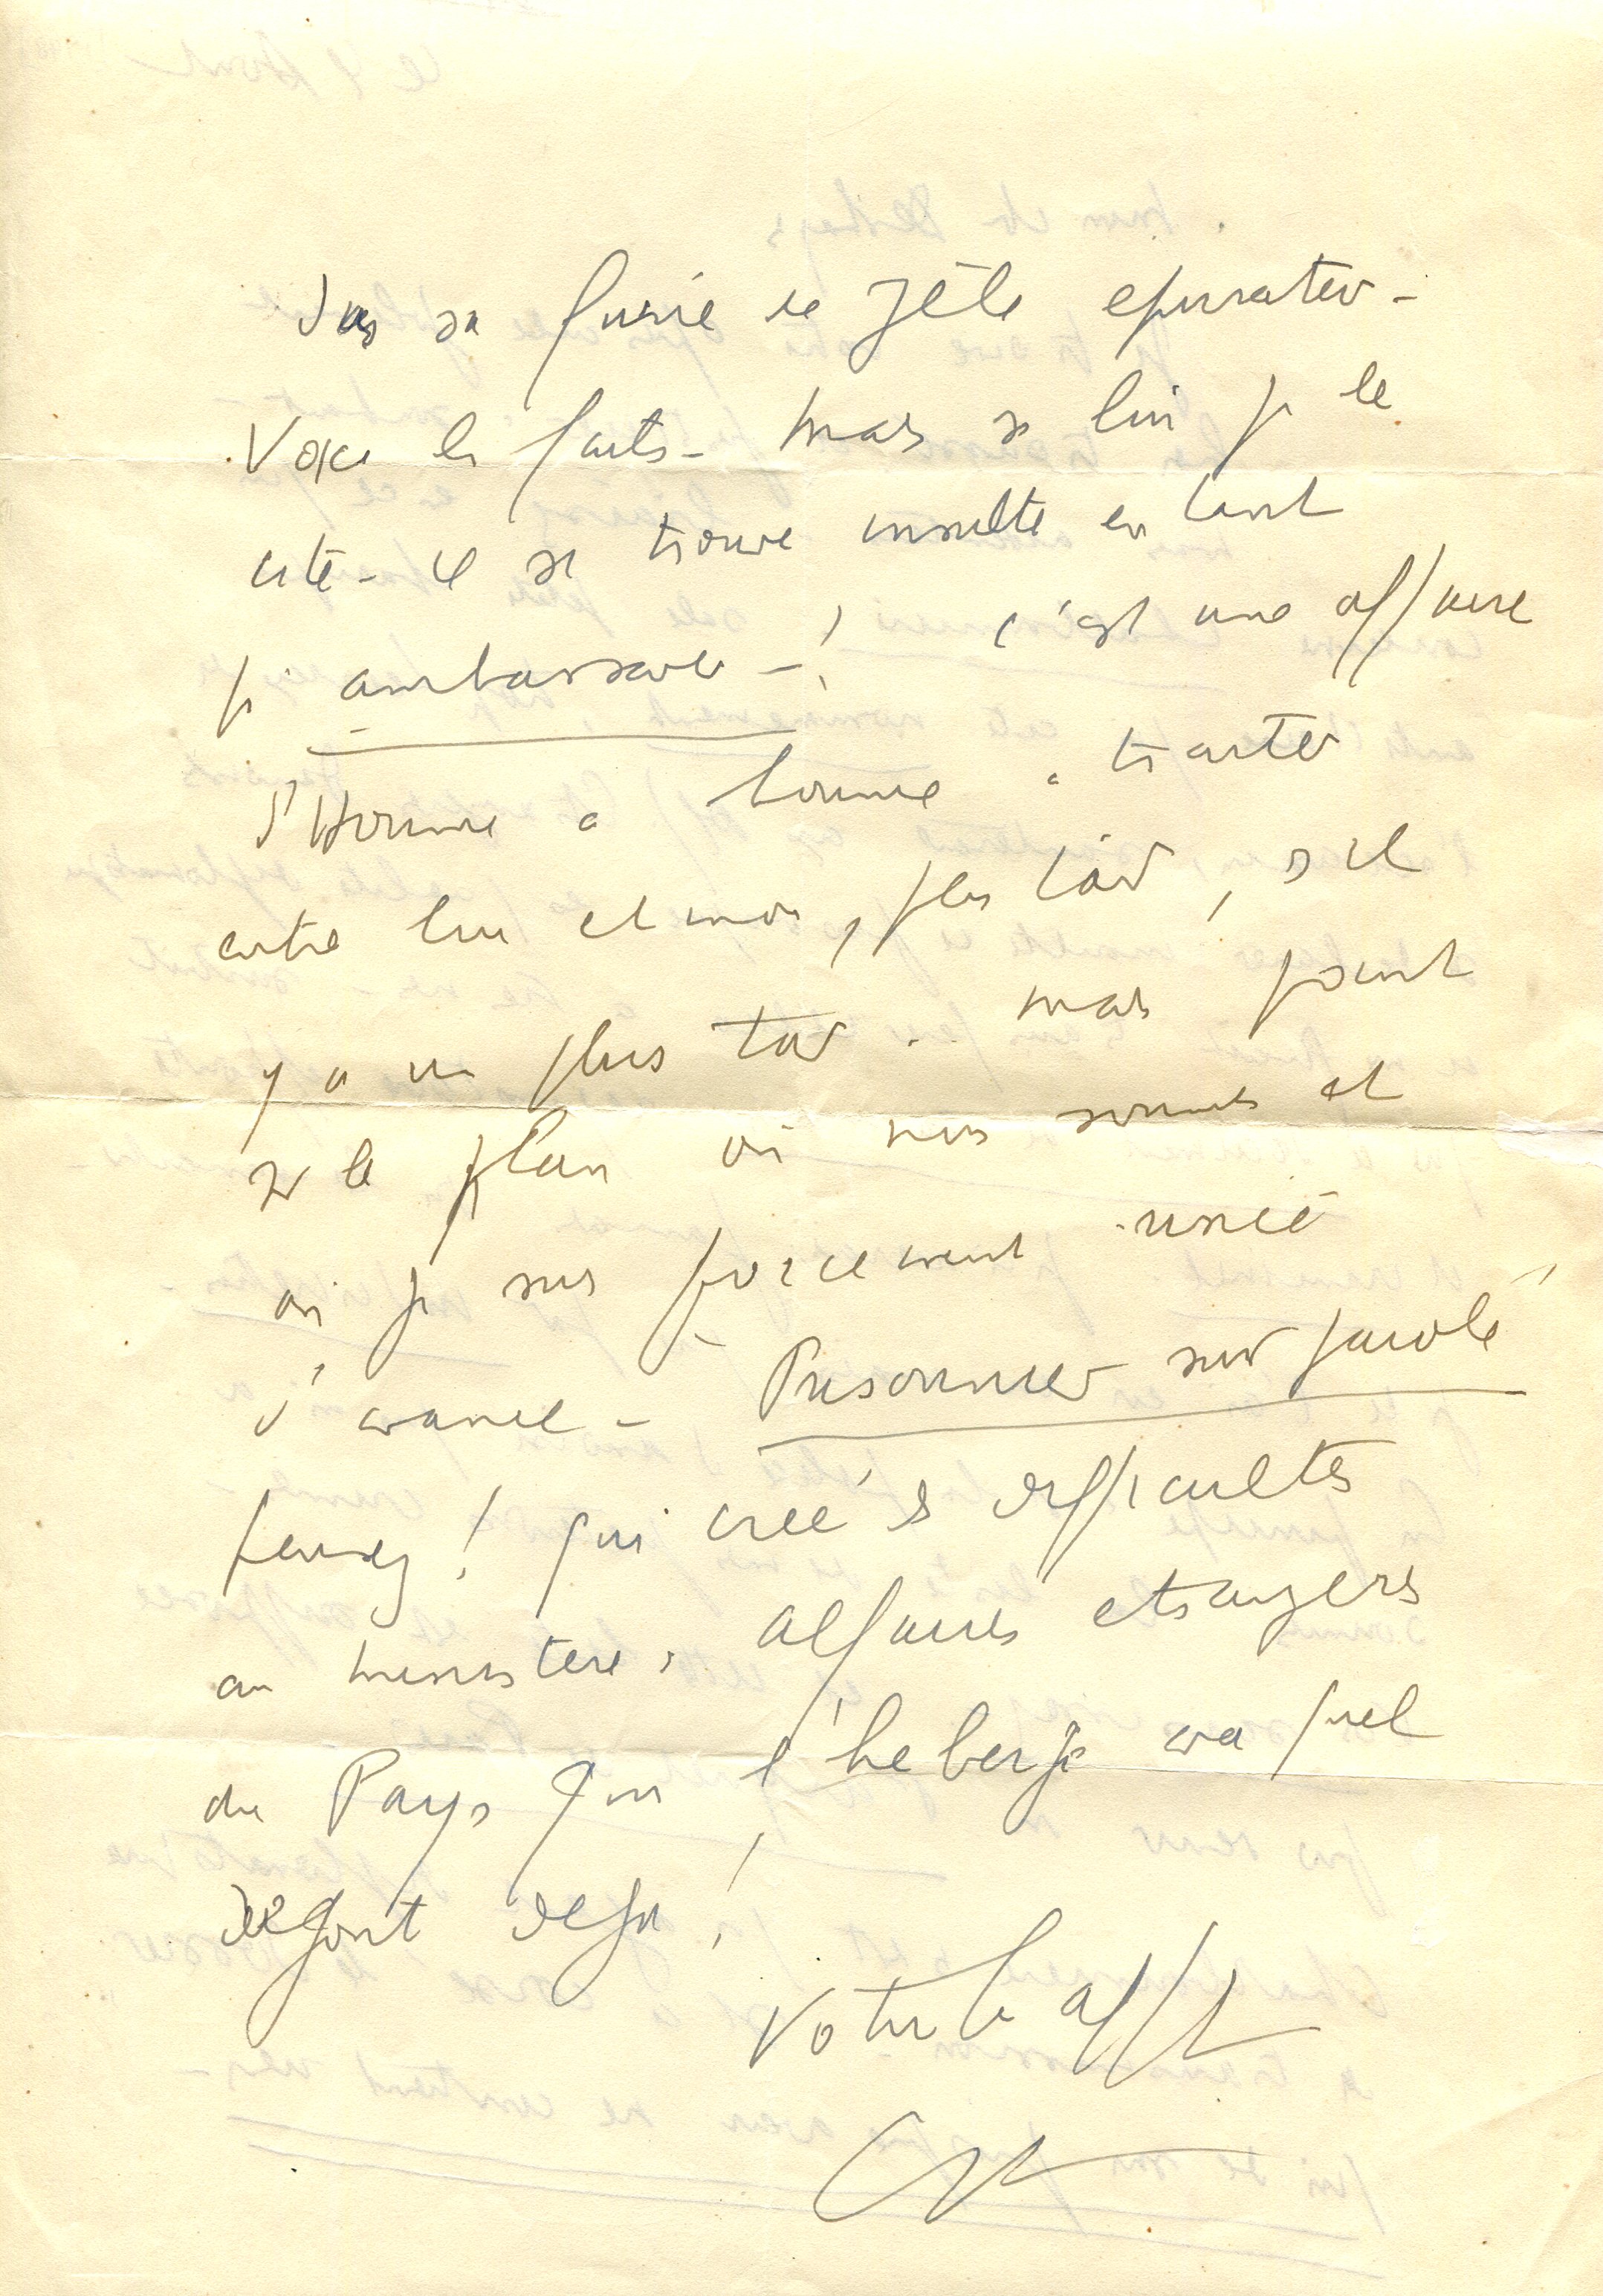 Dans sa furie de Zèle epurateur -
Voici les faits - Mais de lui je le
cite - Il se trouve insulté en tant
qu' ambassadeur - ! C'est une affaire
d'Homme à homme à traiter
entre lui et moi, plus tard, s'il
y a un plus tard .. mais point
sur le plan où nous sommes et
où je suis forcement
d'avance - Prisonnier sur parole
pensez ! qui créé des difficultés
au ministere des affaires etrangeres
du Pays qui l'heberge
dejà !
Votre bien afft